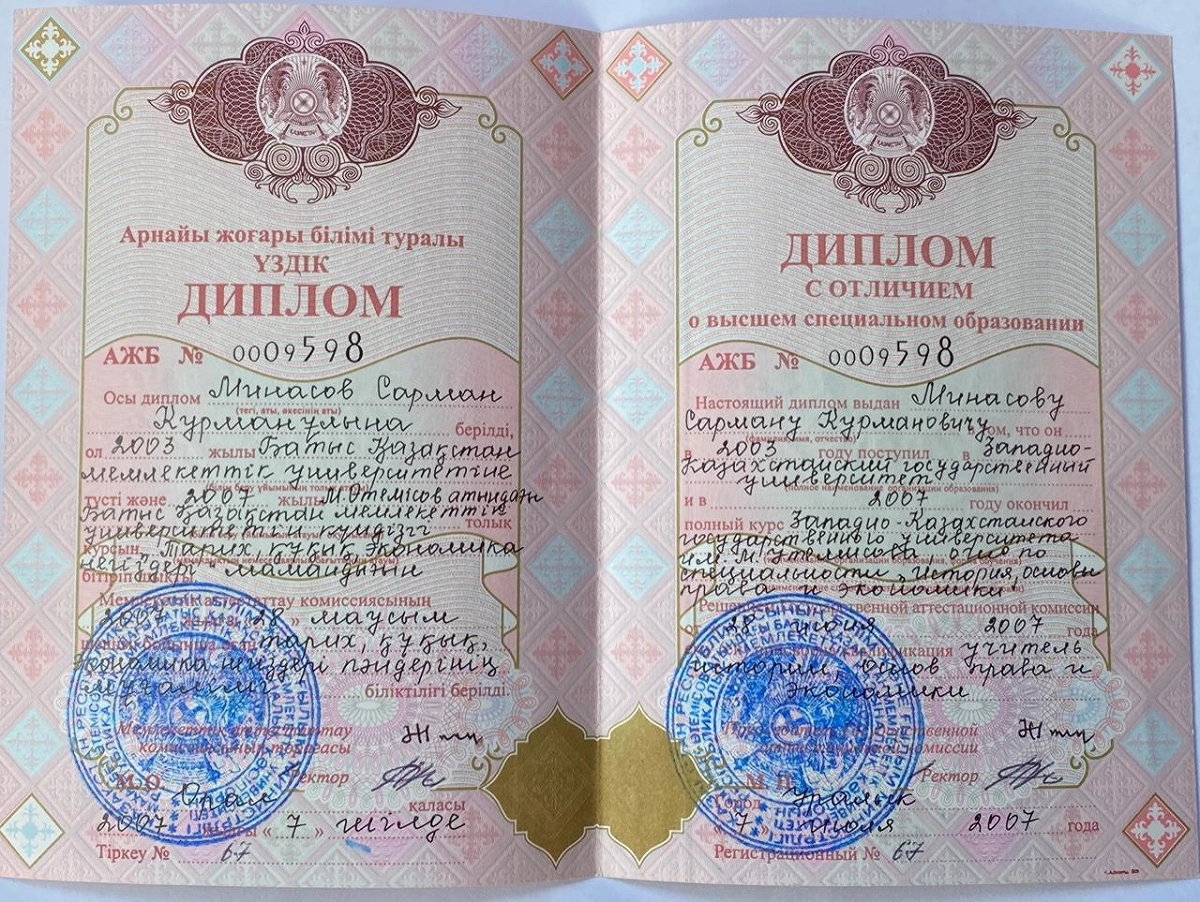 ҚАЗАҚСТАН
Арнайы жоғары білімі туралы
ҮЗДІК
ДИПЛОМ
АЖБ № 0009598
Осы диплом Минасов Сарман
(тегі, аты, әкесінің аты)
Курманулына берілді,
ол 2003 жылы Батыс Қазақстан
мемлекеттік университетіне
түсті және 2007 жылы М.Өтемісов атындағы
Батыс Қазақстан мемлекеттік толық
университетін күндізгі
курсын "Тарих, құқық, экономика
негіздері" мамандығын
бітіріп шықты.
Мемлекеттік аттестаттау комиссиясының
2007 жылғы "28" маусым
шешімі бойынша оған тарих, құқық,
экономика негіздері пәндерінің
мұғалімі біліктілігі берілді.
Мемлекеттік аттестаттау
комиссиясының төрағасы
М.О. Ректор
Орал қаласы
2007 жылғы « 7 » шілде
Тіркеу № 67
ҚАЗАҚСТАН
ДИПЛОМ
С ОТЛИЧИЕМ
о высшем специальном образовании
АЖБ № 0009598
Настоящий диплом выдан Минасову
Сарману Курмановичу в том, что он
(фамилия, имя, отчество)
в 2003 году поступил в Западно-
Казахстанский государственный
университет
(полное наименование организации образования)
и в 2007 году окончил
полный курс Западно-Казахстанского
государственного университета
им. М. Утемисова очно по
специальности "История, основы
права и экономики
Решением Государственной аттестационной комиссии
от 28 июня 2007 года
квалификация учитель
истории, основ права и
экономики
Председатель Государственной
аттестационной комиссии
М.П. Ректор
Город Уральск
« 7 » июля 2007 года
Регистрационный № 67